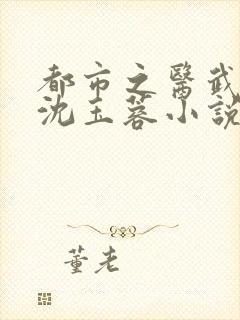 都市之醫武
沈玉蓉小說
董老